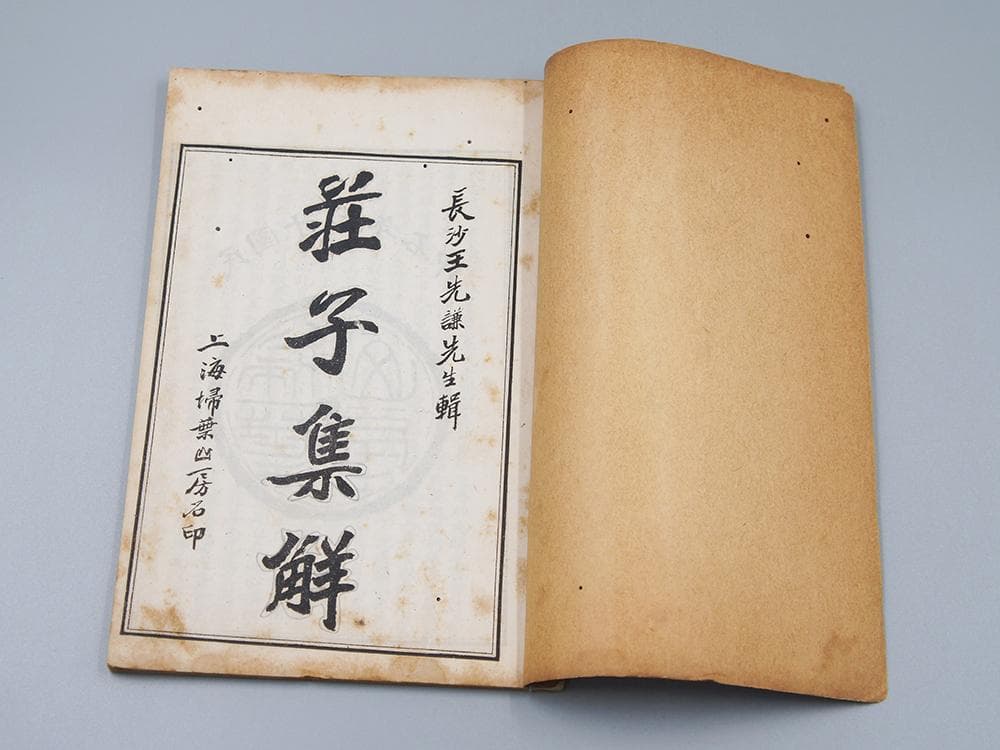 長沙王先謙先生輯
莊子集解
上海埽葉山房石印